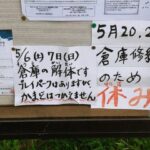 5/6(土)7(日)
倉庫の解体です
プレイパークはありますが、
かまどはつかえません
5月20.2
倉庫修繕
のため
休み